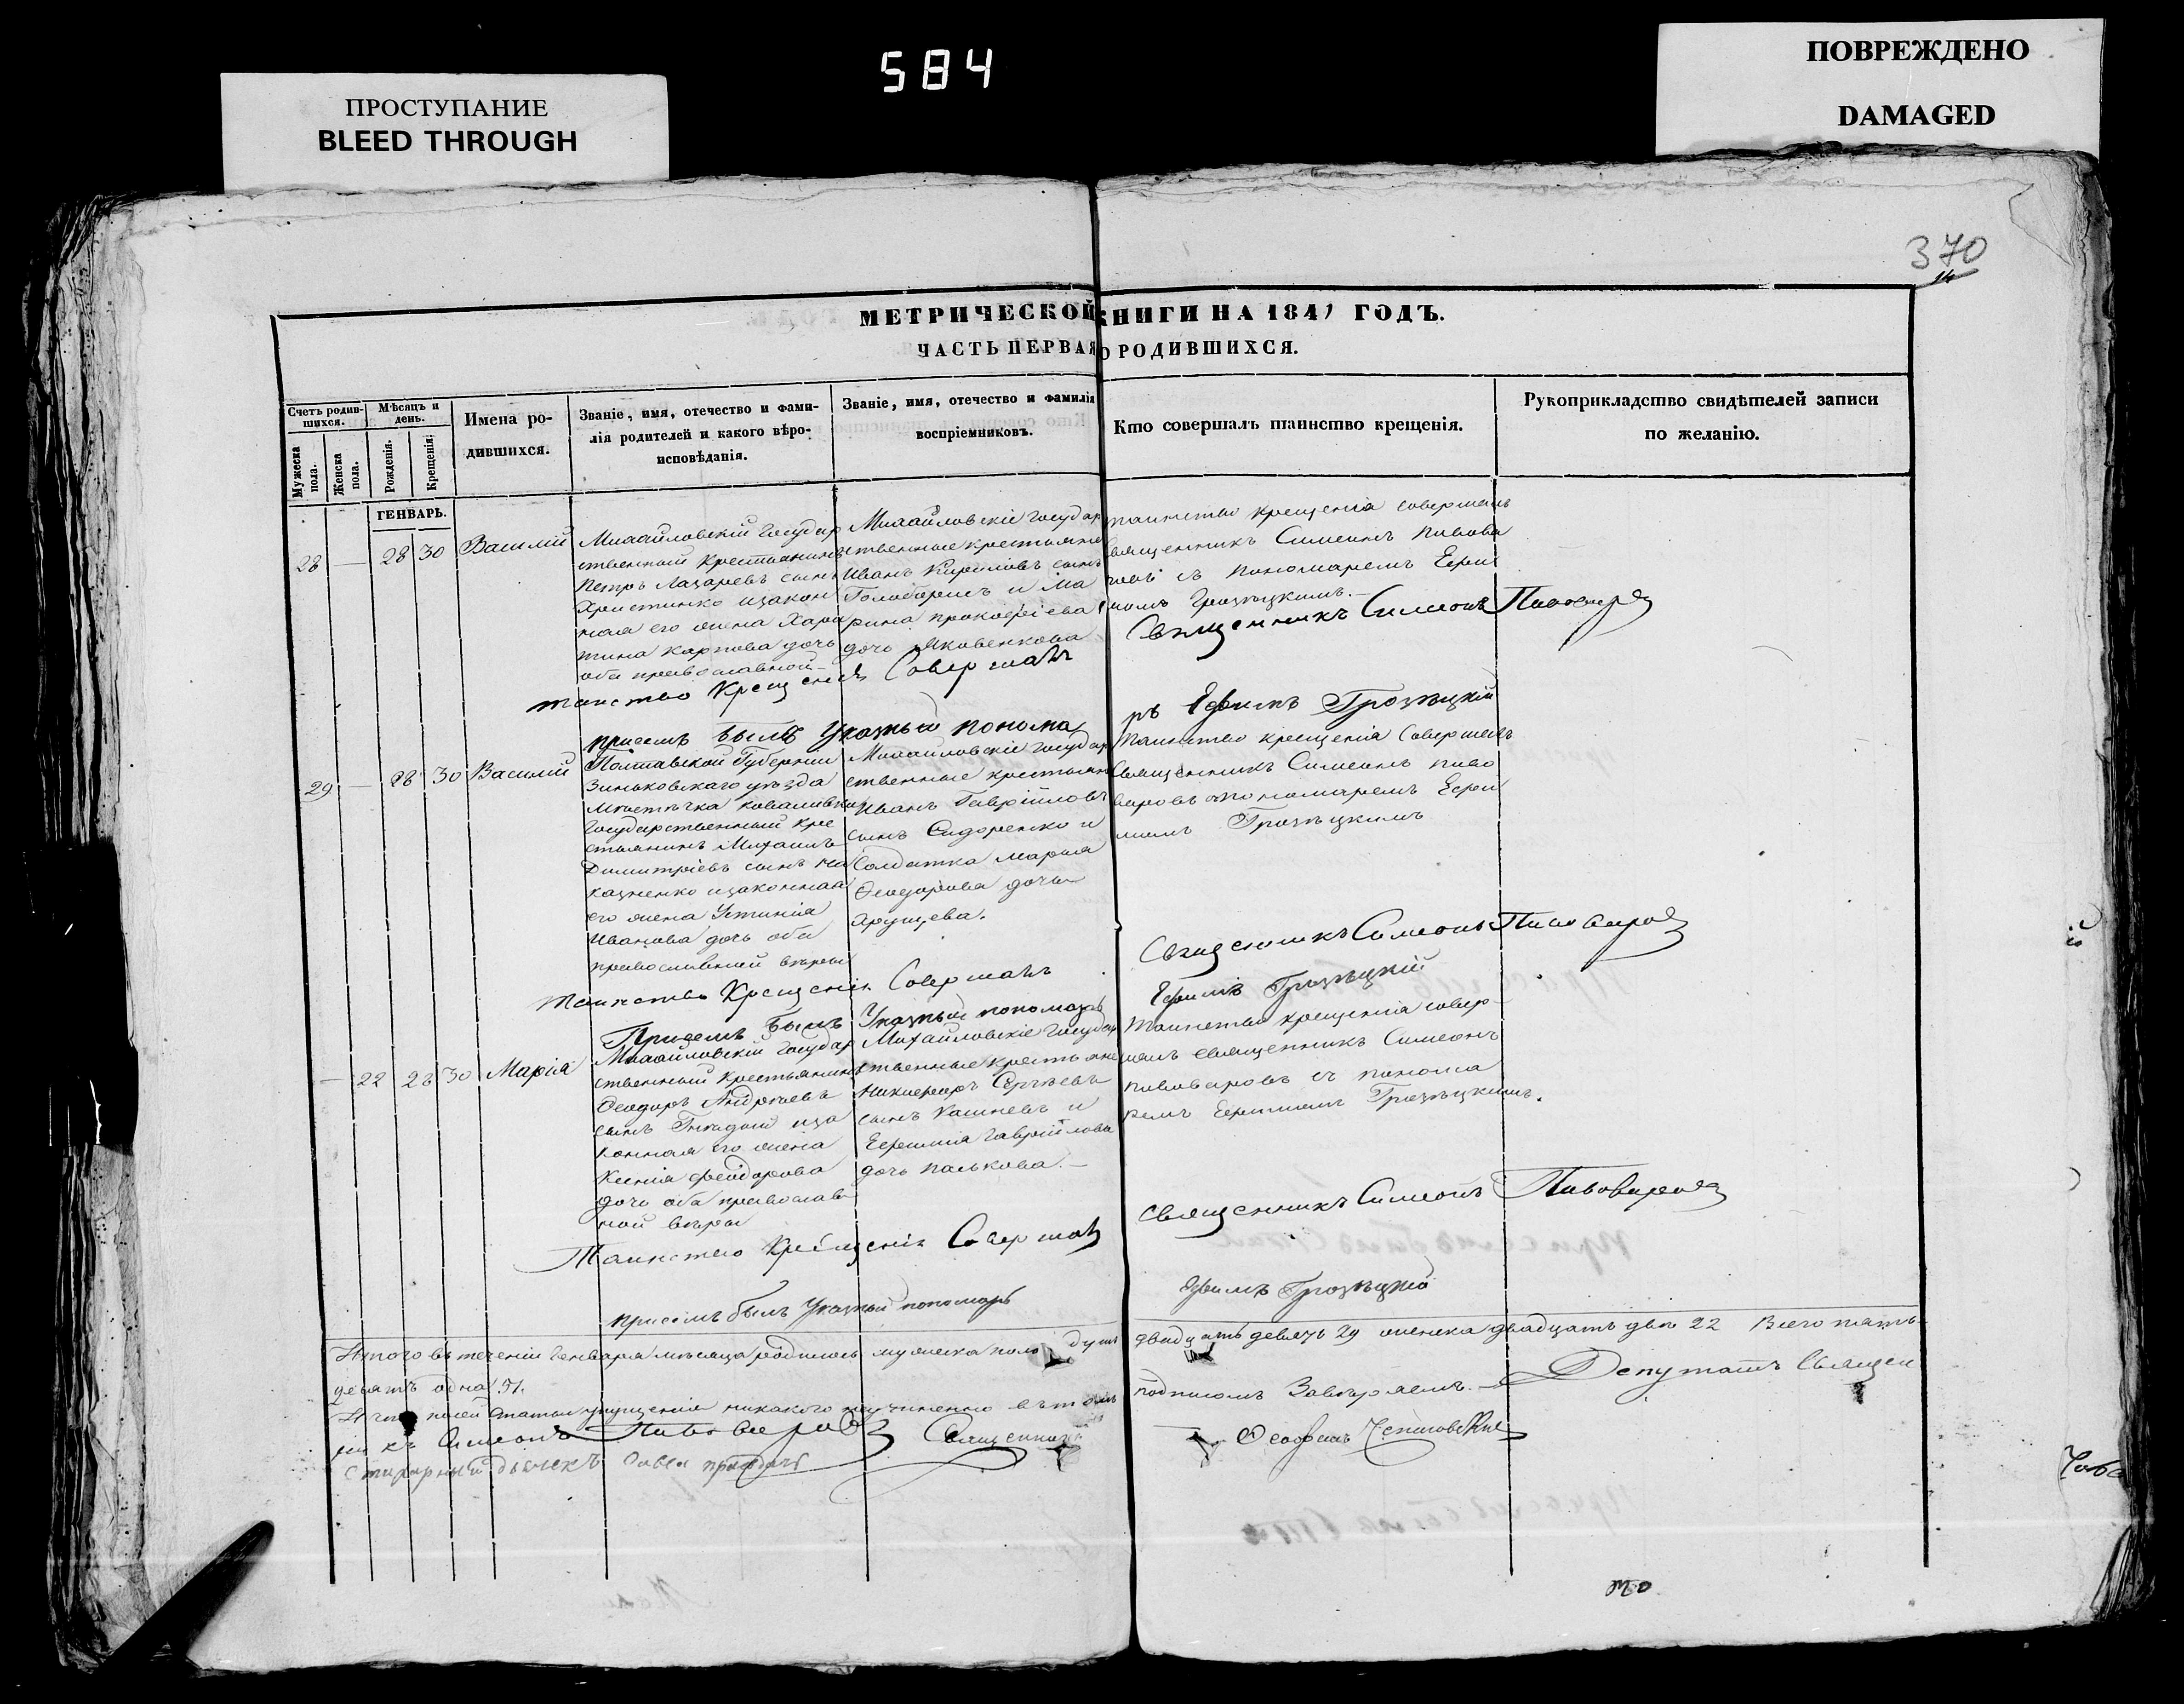 584
ПРОСТУПАНИЕ
BLEED THROUGH
ПОВРЕЖДЕНО
DAMAGED
370
14
МЕТРИЧЕСКОЙ КНИГИ НА 1847 ГОДЪ.
ЧАСТЬ ПЕРВАЯ О РОДИВШИХСЯ.
Счетъ родив-
шихся.
Мужеска пола.
Женска пола.
Мѣсяцъ и
день.
Рожденія.
Крещенія.
Имена ро-
дившихся.
Званіе, имя, отечество и фами-
лія родителей и какого вѣро-
исповѣданія.
Званіе, имя, отечество и фамилія
воспріемниковъ.
Кто совершалъ таинство крещенія.
Рукоприкладство свидѣтелей записи
по желанію.
ГЕНВАРЬ.
28 — 28 30 Василій
Михайловскій Государ
ственный крестьянинъ
Петръ Лазаревъ сынъ
Христинко изакон
ная его жена Хари
тина Карпова дочь
оба православной
Михайловскіе Государ
ственные крестьяне
Иванъ Кириловъ сынъ
и Ма
рина Прокофіева
дочь Яковенкова
таинство крещенія совершалъ
священникъ Симеонъ Пивова
ровъ съ пономаремъ Ефи
момъ Грозѣцкимъ.—
Священникъ Симеонъ Пивоваровъ
таинство Крещенія Совершалъ
присемъ былъ Указный понома
ръ Ефимъ Грозѣцкій
29 — 28 30 Василій
Полтавской Губерніи
Зиньковскаго уѣзда
Мѣстечка Коваливки
Государственный кре
стьянинъ Михаилъ
Димитріевъ сынъ Ма
казненко изаконная
его жена Устинія
Иванова дочь оба
православной вѣры
Михайловскіе государ
ственные крестьяне
Иванъ Гаврійловъ
сынъ Сидоренко и
Солдатка Марія
Феодорова дочь
Ярущева.
Таинство крещенія Совершалъ
Священникъ Симеонъ Пиво
варовъ съ пономаремъ Ефи
момъ Грозѣцкимъ
Священникъ Симеонъ Пивоваровъ
Таинство Крещенія Совершалъ
Присемъ былъ Указный пономарь
Ефимъ Грозѣцкій
— 22 28 30 Марія
Михайловскій Государ
ственный крестьянинъ
Феодоръ Андреевъ
сынъ Гнидый иза
конная его жена
Ксенія Феодорова
дочь оба православ
ной вѣры
Михайловскіе Государ
ственные крестьяне
Никифоръ Сергѣевъ
сынъ Кашневъ и
Ефимія Гаврійлова
дочь Палькова.—
Таинство крещенія совер
шалъ священникъ Симеонъ
Пивоваровъ съ понома
ремъ Ефимомъ Грозѣцкимъ.
Священникъ Симеонъ Пивоваровъ
Таинство Крещенія Совершалъ
присемъ былъ Указный пономарь
Ефимъ Грозѣцкій
Итого въ теченіи Генваря мѣсяца родилось мужеска пола душъ двадцать девять 29 женска двадцать две 22 Всего пять
десятъ одна 51.
И что посей статьи упущенія никакого неучинено въ томъ подписомъ Завѣряемъ.— Депутатъ Священ
никъ Симеонъ Пивоваровъ Священникъ Феофилъ
Стихарный дьячекъ Савва
то